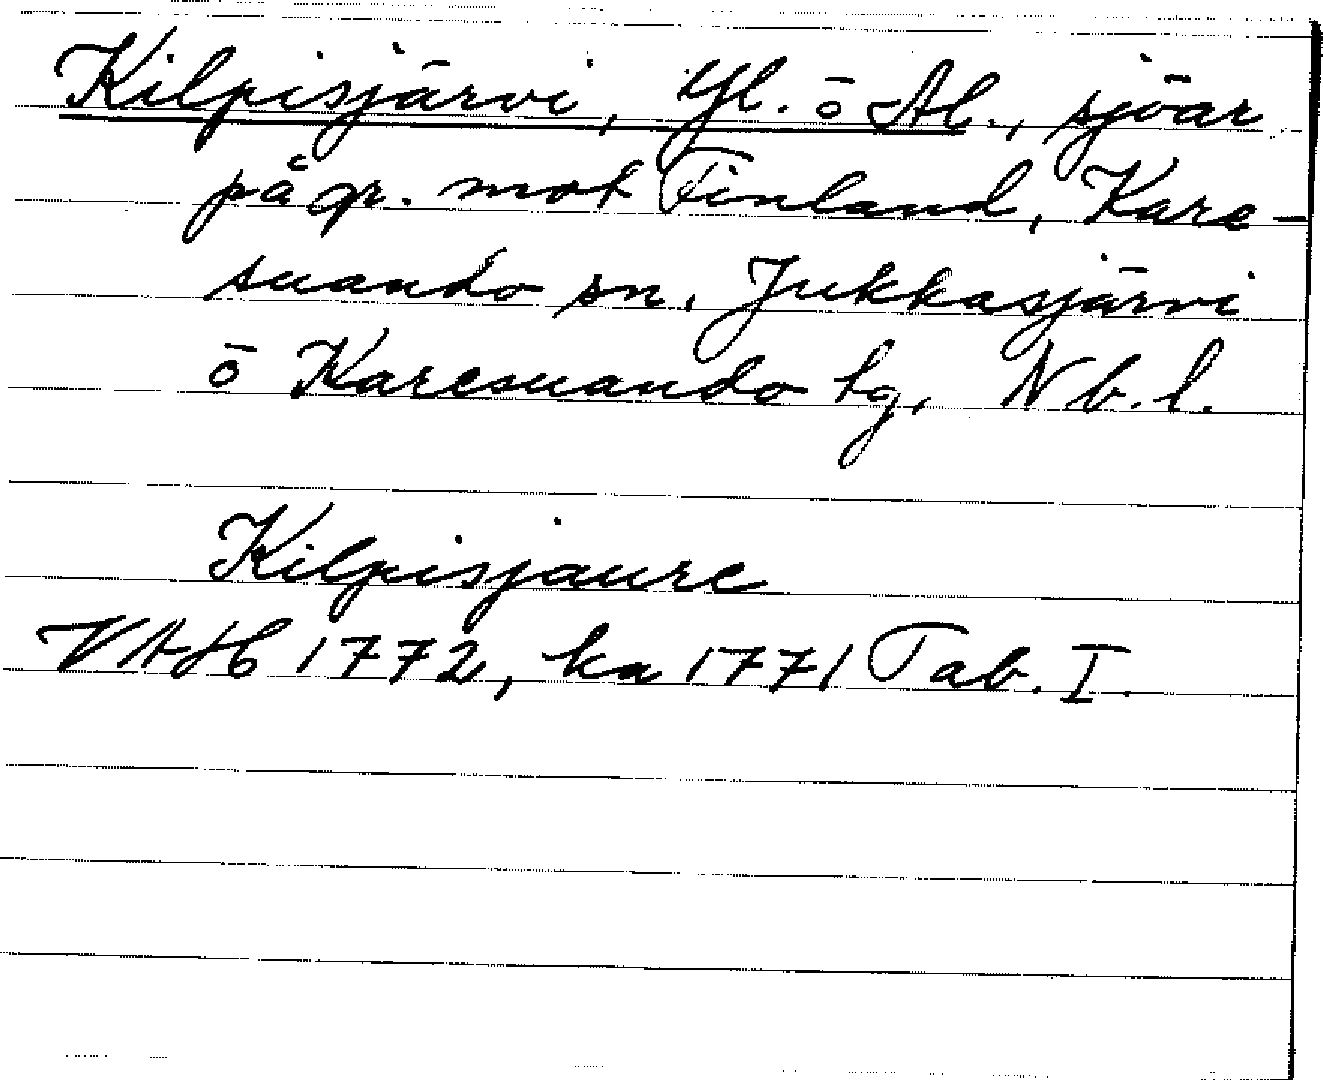 Kilpisjärvi, Yl. o Al., sjöar
på gr. mot Finland, Kare-
suando sn, Jukkasjärvi
o Karesuando tg, Nb.l.
Kilpisjaure
VAH 1772, ka 1771 Tab. I.